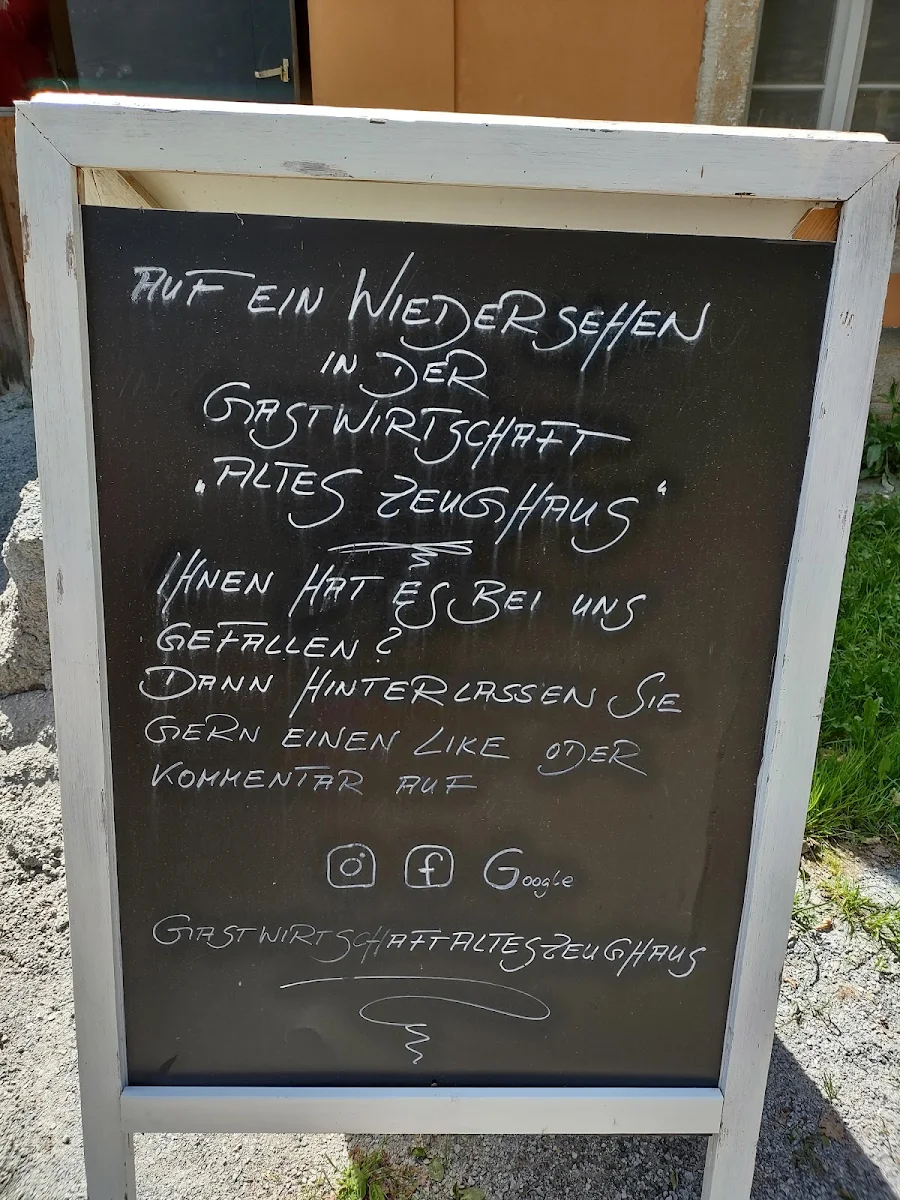 AUF EIN WIEDERSEHEN
IN DER
GASTWIRTSCHAFT
„ALTES ZEUGHAUS“
IHNEN HAT ES BEI UNS
GEFALLEN?
DANN HINTERLASSEN SIE
GERN EINEN LIKE ODER
KOMMENTAR AUF
f Google
GASTWIRTSCHAFTALTESZEUGHAUS